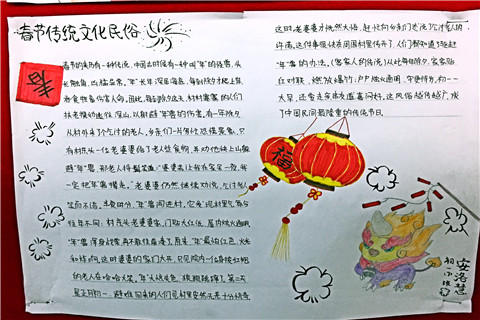 春节传统文化民俗
春
春节的来历有一种传说，中国古时侯有一个叫"年"的怪兽，头
长触角，凶猛异常。"年"长年深居海底，每到除夕才爬上岸
吞食牲畜伤害人命。因此，每到除夕这天，村村寨寨的人们
扶老携幼逃往深山，以躲避"年"兽的伤害。有一年除夕
从村外来了个乞讨的老人，乡亲们一片匆忙恐慌景象，只
有村东头一位老婆婆给了老人些食物，并劝他快上山躲
避"年"兽，那老人捋髯笑道："婆婆若让我在家呆一夜，我
一定把年兽撵走。"老婆婆仍然继续劝说，乞讨老人
笑而不语。半夜时分，"年"兽闯进村，它发现村里气氛与
往年不同：村东头老婆婆家，门贴大红纸，屋内烛火通明
"年"兽浑身战栗，再不敢往前凑了，原来"年"最怕红色、火光
和炸响，这时婆婆的家门大开，只见院内一位身披红袍
的老人在哈哈大笑。"年"大惊失色，狼狈逃蹿了。第二天
是正月初一，避难回来的人们见村里安然无恙十分惊奇
这时，老婆婆才恍然大悟，赶忙向乡亲们述说了乞讨老人的
许诺。这件事很快在周围村里传开了，人们都知道了驱赶
"年"兽的办法。(客家人的传统)从此每年除夕，家家贴
红对联、燃放爆竹；户户烛火通明、守更待岁。初一一
大早，还要走亲串友道喜问好。这风俗越传越广，成
了中国民间最隆重的传统节日。
福
安洛慧